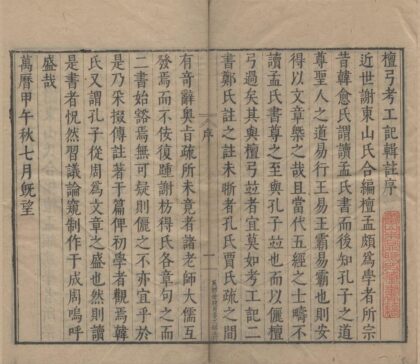 檀弓考工記輯註序
近世謝東山氏合編檀孟頗爲學者所宗
昔韓愈氏謂讀孟氏書而後知孔子之道
尊聖人之道易行王易王霸易霸也則安
得以文章槩之哉且當代五經之士疇不
讀孟氏書尊之至與孔子竝也而以儷檀
弓過矣其與檀弓竝者宜莫如考工記二
書鄭氏註之未晣者孔氏賈氏疏之間
序
一
有奇辭奧旨疏所未竟者諸老師大儒互
發焉而不佞復踵謝枋得氏各章句之而
二書始豁焉無可疑則儷之不亦宜乎於
是乃采掇傳註著于篇俾初學者觀焉韓
氏又謂孔子從周爲文章之盛也然則讀
是書者怳然習議論窺制作于成周嗚呼
盛哉
萬曆甲午秋七月旣望